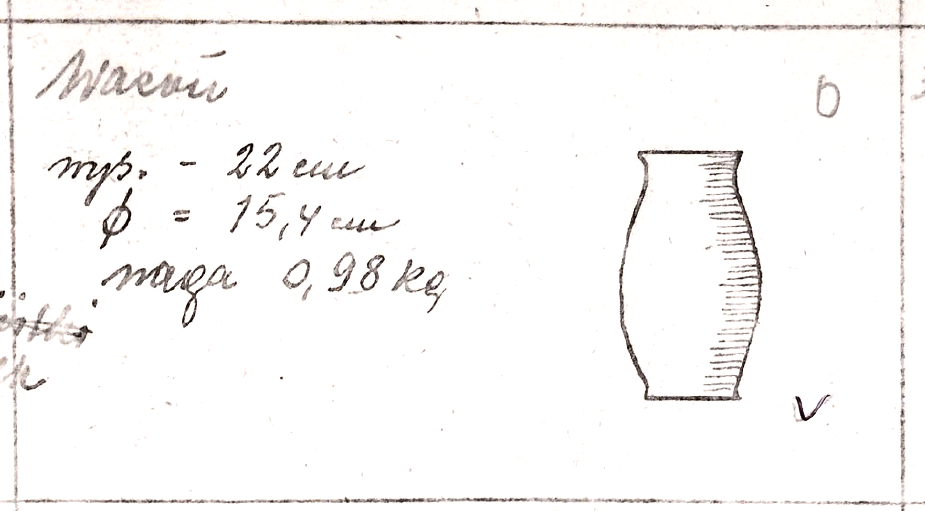 Wazon
O
wys. - 22 cm
ϕ = 15,4 cm
waga 0,98 kg
V